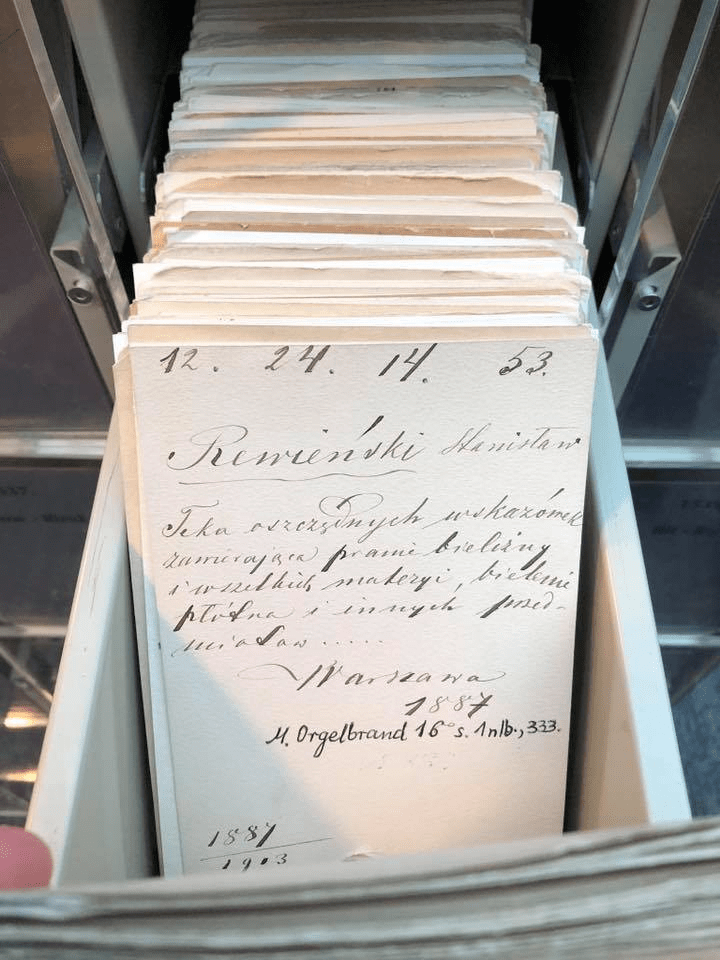 12. 24. 14. 53.
Rewieński Stanisław
Teka oszczędnych wskazówek
zawierająca pranie bielizny
i wszelkich materyi, bielenie
płótna i innych przed-
miotow .....
Warszawa
1887
M. Orgelbrand 16° s. 1 nlb., 333.
1887
1903